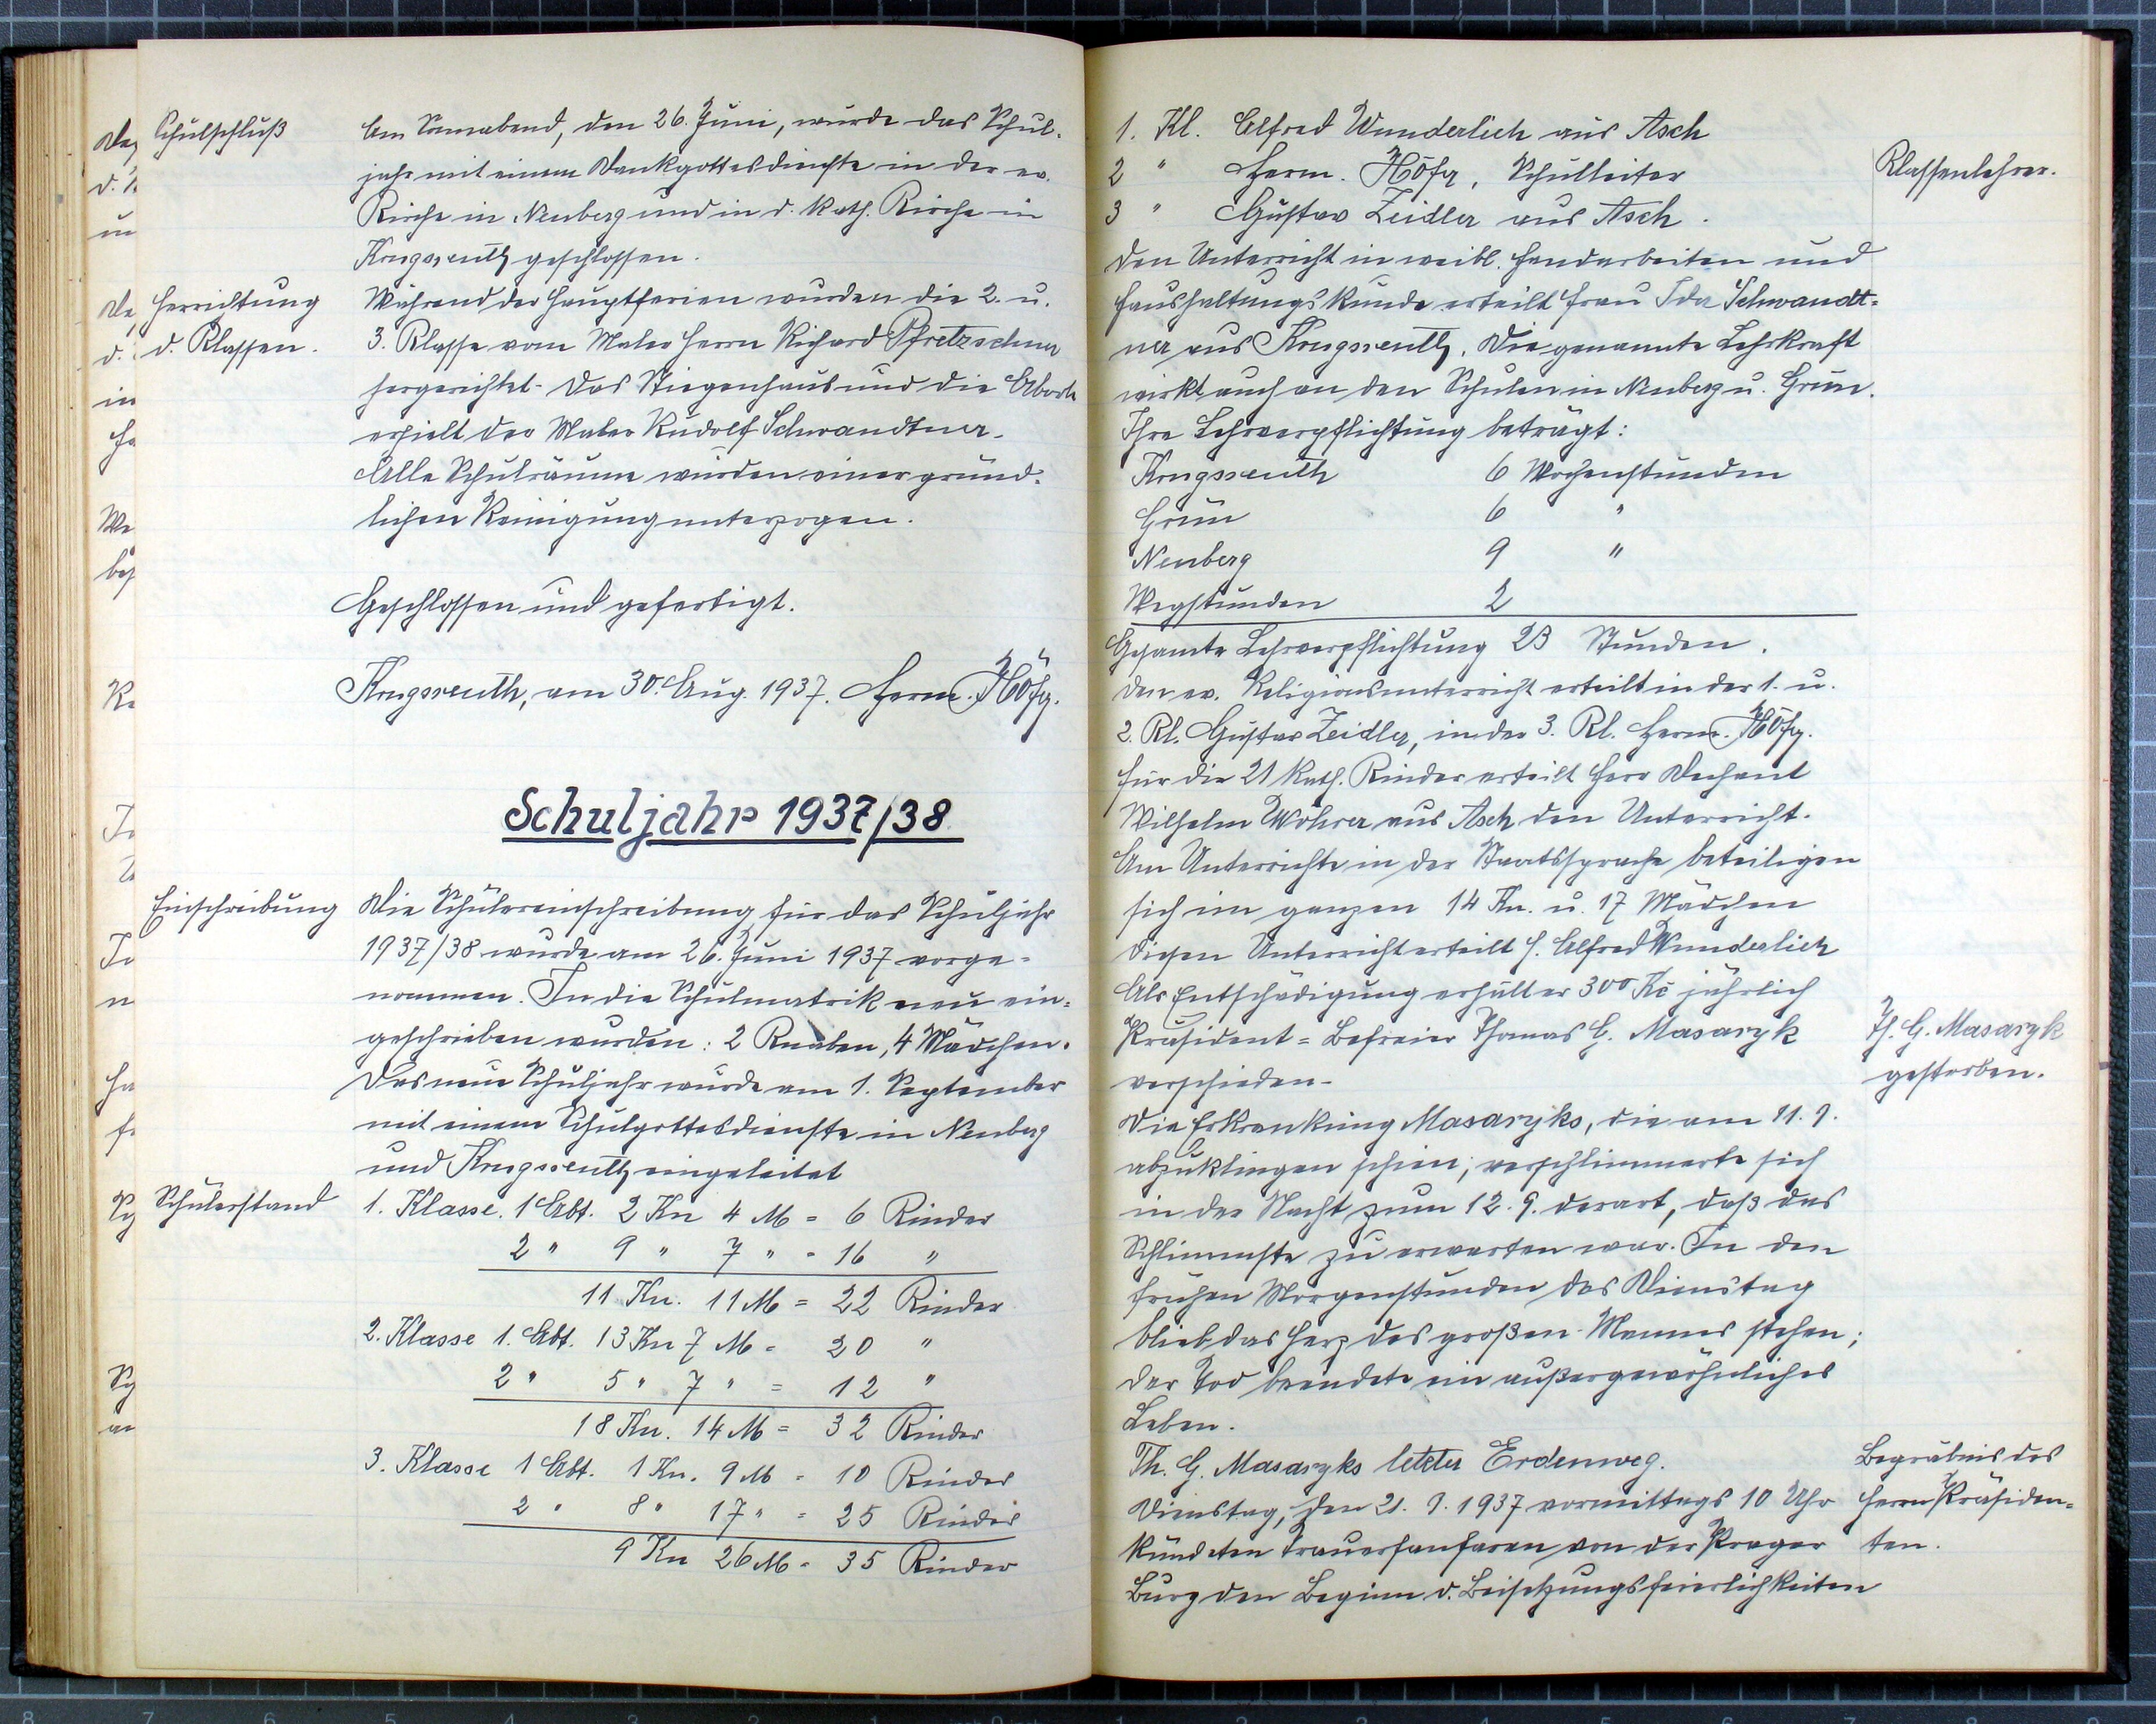 Schulschluß
Am Sonnabend, den 26. Juni, wurde das Schul-
jahr mit einem Dankgottesdienste in der ev.
Kirche in Neuberg und in d. kath. Kirche in
Krugsreuth geschlossen.
Herrichtung
d. Klassen.
Während der Hauptferien wurden die 2. u.
3. Klasse vom Maler Herrn Richard Pfretzschner
hergerichtet. Das Stiegenhaus und die Aborte
erhielt der Maler Rudolf Schwandtner.
Alle Schulräume wurden einer gründ-
lichen Reinigung unterzogen.
Geschlossen und gefertigt.
Krugsreuth, am 30. Aug. 1937. Herm. Höfer.
Schuljahr 1937/38
Einschreibung
Die Schülereinschreibung für das Schuljahr
1937/38 wurde am 26. Juni 1937 vorge-
nommen. In die Schulmatrik neu ein-
geschrieben wurden: 2 Knaben, 4 Mädchen.
Das neue Schuljahr wurde am 1. September
mit einem Schulgottesdienste in Neuberg
und Krugsreuth eingeleitet
Schülerstand
1. Klasse. 1 Abt. 2 Kn 4 M = 6 Kinder
2 " 9 " 7 " = 16 "
11 Kn. 11 M = 22 Kinder
2. Klasse 1. Abt. 13 Kn 7 M = 20 "
2 " 5 " 7 " = 12 "
18 Kn. 14 M = 32 Kinder
3. Klasse 1 Abt. 1 Kn. 9 M = 10 Kinder
2 " 8 " 17 " = 25 Kinder
9 Kn 26 M = 35 Kinder
1. Kl. Alfred Wunderlich aus Asch
2 " Herm. Höfer, Schulleiter
3 " Gustav Zeidler aus Asch.
Klassenlehrer.
Den Unterricht in weibl. Handarbeiten und
Haushaltungskunde erteilt Frau Ida Schwandt-
ner aus Krugsreuth. Die genannte Lehrkraft
wirkt auch an den Schulen in Neuberg u. Grün.
Ihre Lehrverpflichtung beträgt:
Krugsreuth 6 Wochenstunden
Grün 6 "
Neuberg 9 "
Wegstunden 2
Gesamte Lehrverpflichtung 23 Stunden.
Den ev. Religionsunterricht erteilt in der 1. u.
2. Kl. Gustav Zeidler, in der 3. Kl. Herm. Höfer.
Für die 21 kath. Kinder erteilt Herr Dechant
Wilhelm Wöhrer aus Asch den Unterricht.
Am Unterrichte in der Staatssprache beteiligen
sich im ganzen 14 Kn. u. 17 Mädchen
Diesen Unterricht erteilt H. Alfred Wunderlich
Als Entschädigung erhält er 300 Kč jährlich
Präsident-Befreier Thomas G. Masaryk
verschieden.
Th. G. Masaryk
gestorben.
Die Erkrankung Masaryks, die am 11. 9.
abzuklingen schien, verschlimmerte sich
in der Nacht zum 12. 9. derart, daß das
Schlimmste zu erwarten war. In den
frühen Morgenstunden des Dienstag
blieb das Herz des großen Mannes stehen;
der Tod beendete ein außergewöhnliches
Leben.
Th. G. Masaryks letzter Erdenweg.
Begräbnis des
Herrn Präsiden-
ten.
Dienstag, den 21. 9. 1937 vormittags 10 Uhr
kündeten Trauerfanfaren von der Prager
Burg den Beginn d. Beisetzungsfeierlichkeiten